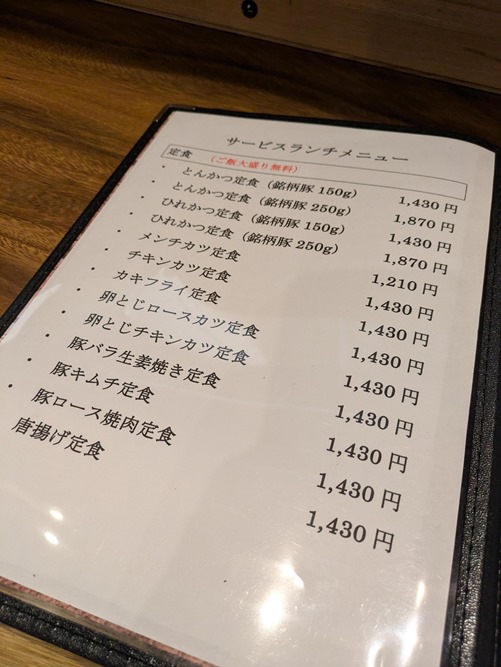 サービスランチメニュー
定食 （ご飯大盛り無料）
・ とんかつ定食（銘柄豚 150g） 1,430 円
・ とんかつ定食（銘柄豚 250g） 1,870 円
・ ひれかつ定食（銘柄豚 150g） 1,430 円
・ ひれかつ定食（銘柄豚 250g） 1,870 円
・ メンチカツ定食 1,210 円
・ チキンカツ定食 1,430 円
・ カキフライ定食 1,430 円
・ 卵とじロースカツ定食 1,430 円
・ 卵とじチキンカツ定食 1,430 円
・ 豚バラ生姜焼き定食 1,430 円
・ 豚キムチ定食 1,430 円
・ 豚ロース焼肉定食 1,430 円
唐揚げ定食 1,430 円